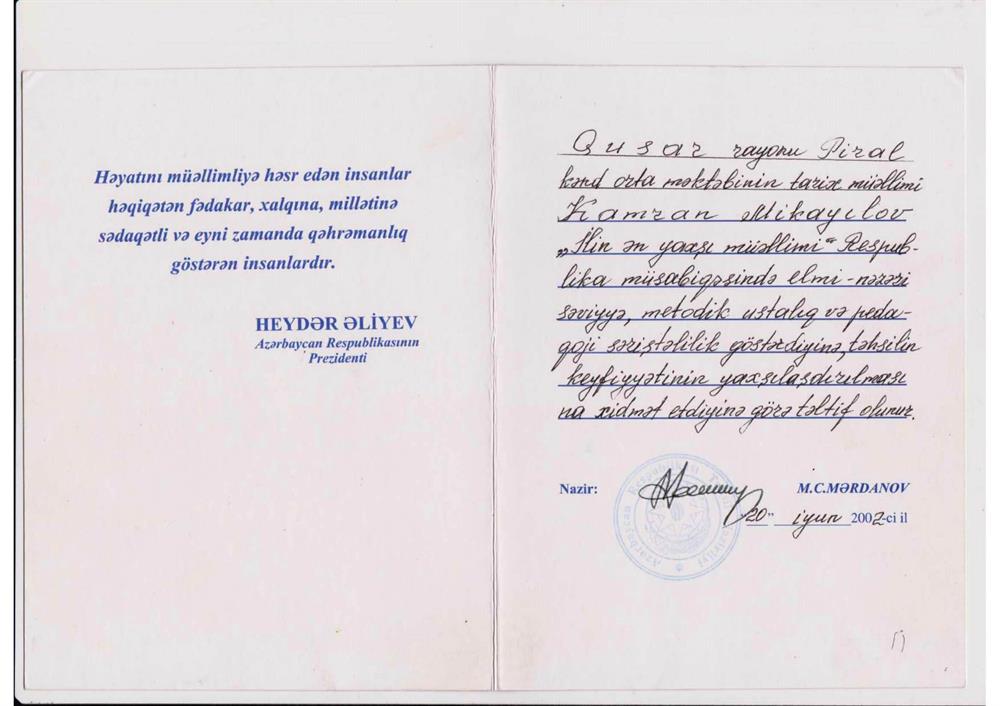 Həyatını müəllimliyə həsr edən insanlar
həqiqətən fədakar, xalqına, millətinə
sədaqətli və eyni zamanda qəhrəmanlıq
göstərən insanlardır.
HEYDƏR ƏLİYEV
Azərbaycan Respublikasının
Prezidenti
Qusar rayonu Piral
kənd orta məktəbinin tarix müəllimi
Kamran Mikayılov
„İlin ən yaxşı müəllimi“ Respub-
lika müsabiqəsində elmi-nəzəri
səviyyə, metodik ustalıq və peda-
qoji səriştəlilik göstərdiyinə, təhsilin
keyfiyyətinin yaxşılaşdırılması
na xidmət etdiyinə görə təltif olunur.
Nazir:
M.C.MƏRDANOV
"20" iyun 2002-ci il
Azərbaycan Respublikası Təhsil Nazirliyi